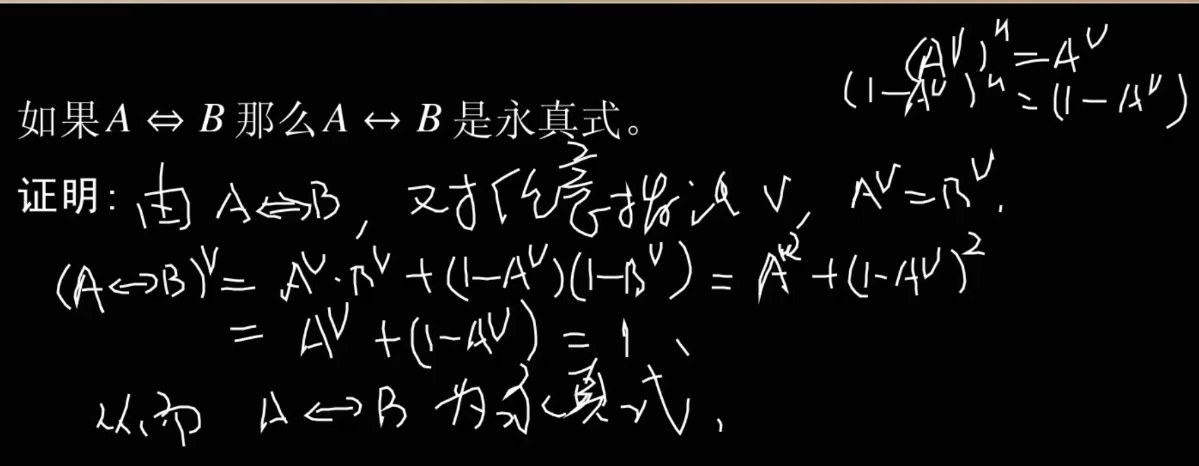 (Aᵛ)ⁿ = Aᵛ
(1-Aᵛ)ⁿ = (1-Aᵛ)
如果A ⇔ B那么A ↔ B是永真式。
证明: 由 A⇔B, 又对任意指派 v, Aᵛ=Bᵛ.
(A↔B)ᵛ = Aᵛ·Bᵛ + (1-Aᵛ)(1-Bᵛ) = Aᵛ² + (1-Aᵛ)²
= Aᵛ + (1-Aᵛ) = 1、
从而 A↔B 为永真式.